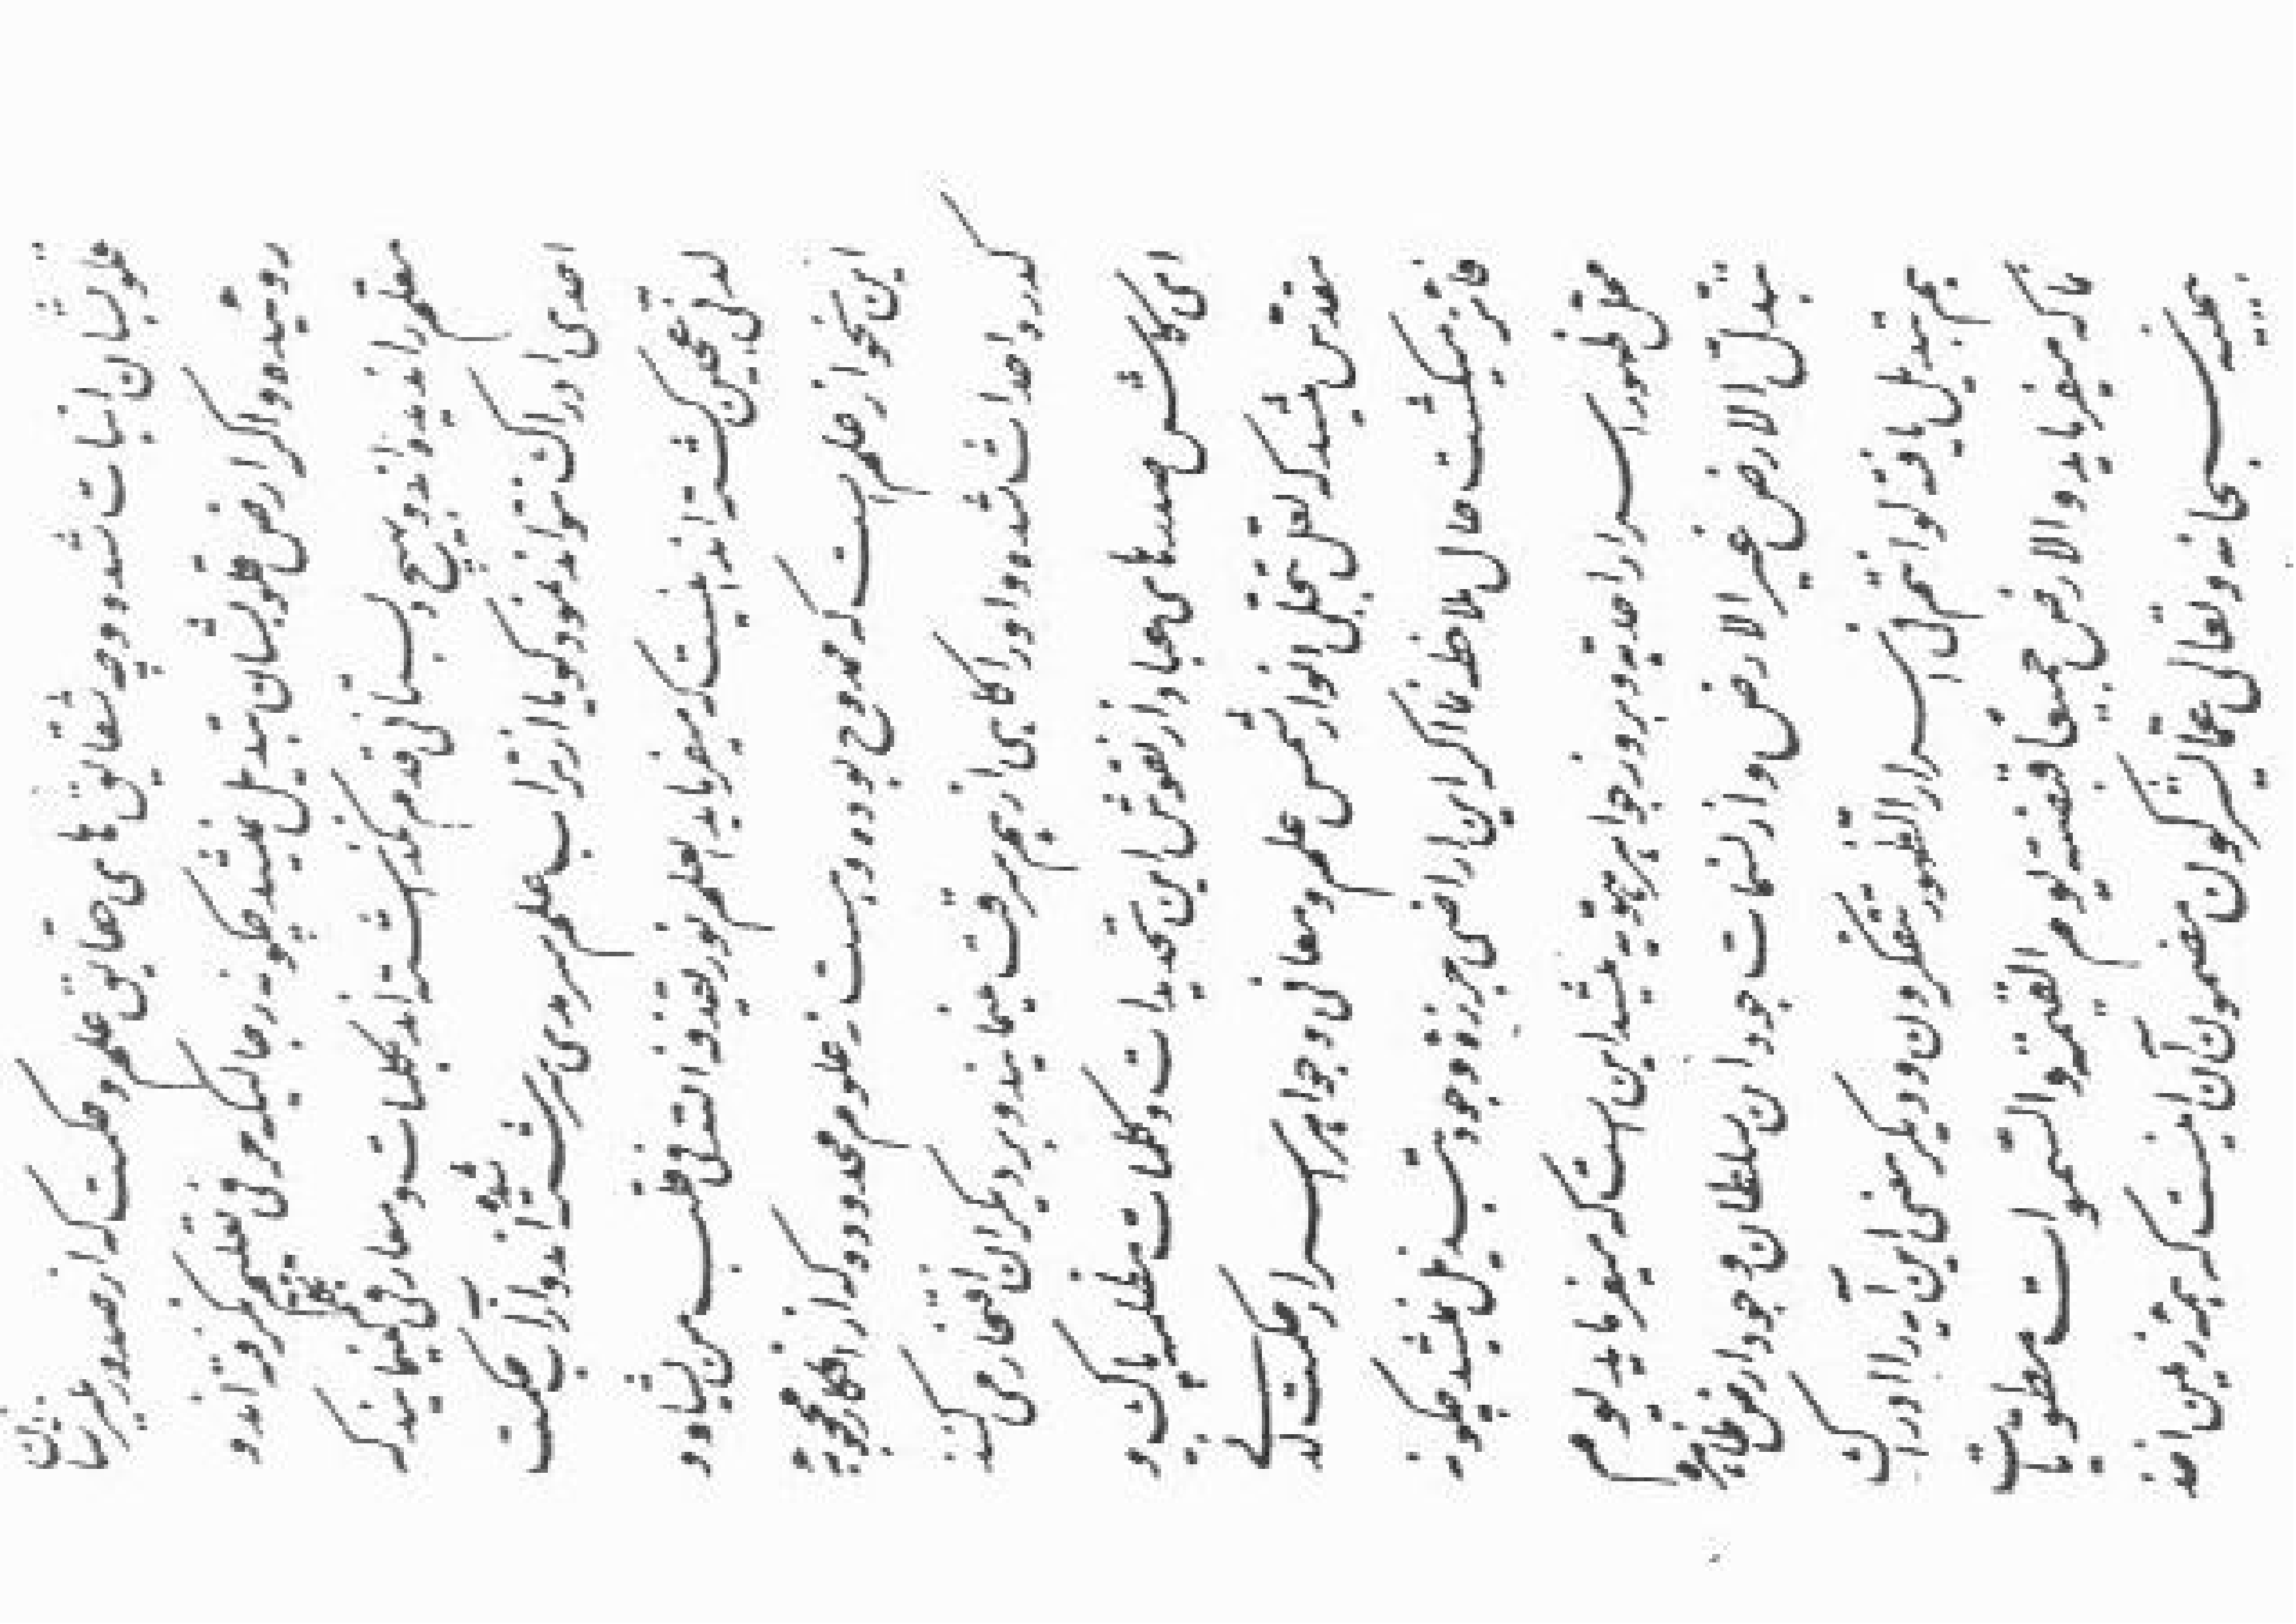 قلوبشان انبات شد و چه شقایق های حقایق علم و حکمت که از صدور منیرشان
روئیده و اگر ارض قلوبشان تبدیل نمیشد چگونه رجالیکه حرفی تعلیم نگرفته اند و
معلم را ندیده اند و بهیچ دبستانی قدم نگذاشته اند بکلمات و معارفی تکلم مینمایند که
احدی ادراک نتواند نمود گویا از تراب علم سرمدی سرشته شده اند و از آب حکمت
لدنی عجین گشته اند اینست که میفرماید العلم نور یقذفه الله فی قلب من یشاء و
این نحو از علم است که ممدوح بوده و هست نه علوم محدوده که از افکار محجوبه
کدره احداث شده و او را گاهی از هم سرقت مینمایند و بر دیگران افتخار می کنند
ای کاش صدرهای عباد از نقوش این تحدیدات و کلمات مظلمه پاک و
مقدس میشد که لعل بتجلی انوار شمس علم و معانی و جواهر اسرار حکمت لدنی
فائز میگشت حال ملاحظه نما اگر این اراضی جرزه وجود تبدیل نمیشد چگونه
محل ظهور اسرار احدیه و بروز جواهر هویه میشد این است که میفرماید یوم
تبدل الارض غیر الارض و از نسمات جود آن سلطان وجود ارض ظاهره
هم تبدیل یافته لو انتم فی اسرار الظهور تتفکرون و دیگر معنی این آیه را ادراک
نما که میفرماید والارض جمیعا قبضته یوم القیمة و السموات مطویات
بیمینه سبحانه و تعالی عما یشرکون مضمون آن اینست که همه زمین اخذ